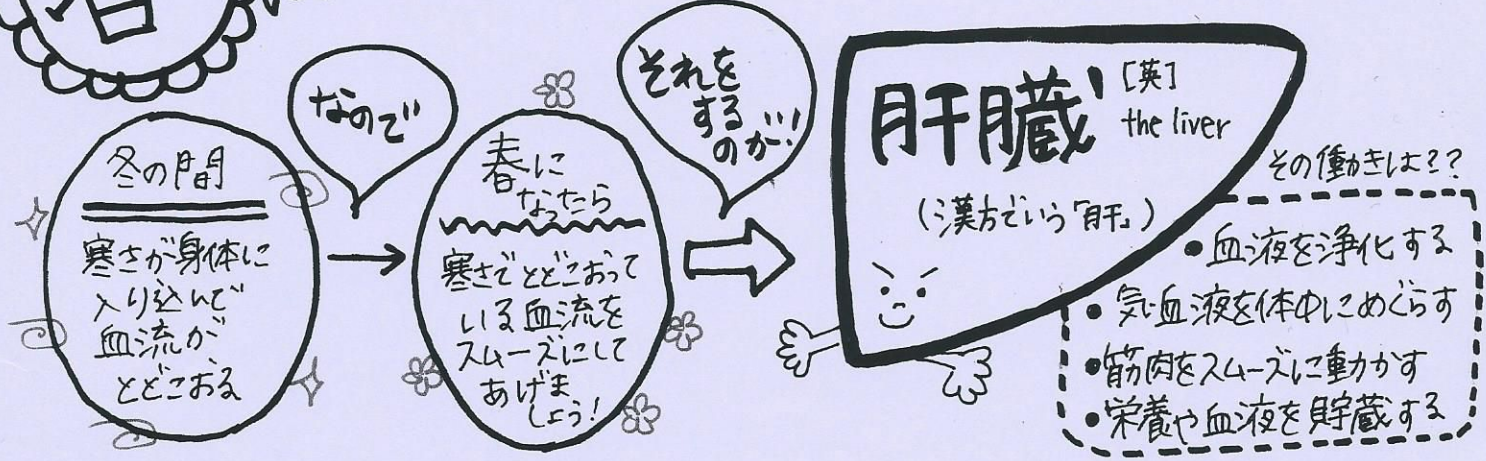 春
冬の間
寒さが身体に
入り込んで
血流が
とどこおる
なので
春に
なったら
寒さでとどこおって
いる血流を
スムーズにして
あげま
しょう!
それを
する
のが!!
肝臓
[英]
the liver
(漢方でいう「肝」)
その働きは??
•血液を浄化する
•気・血液を体中にめぐらす
•筋肉をスムーズに動かす
•栄養や血液を貯蔵する